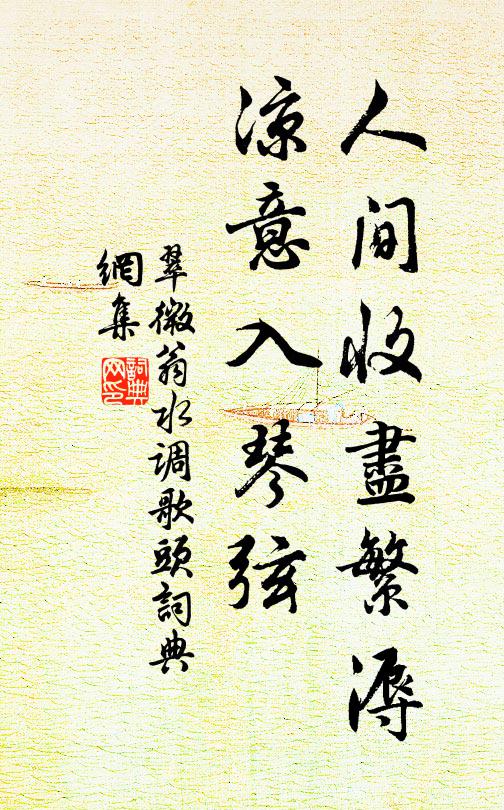 人间收盡繁溽
凉意入琴弦
翠微翁水调歌頭詞典
網集
詞典网印